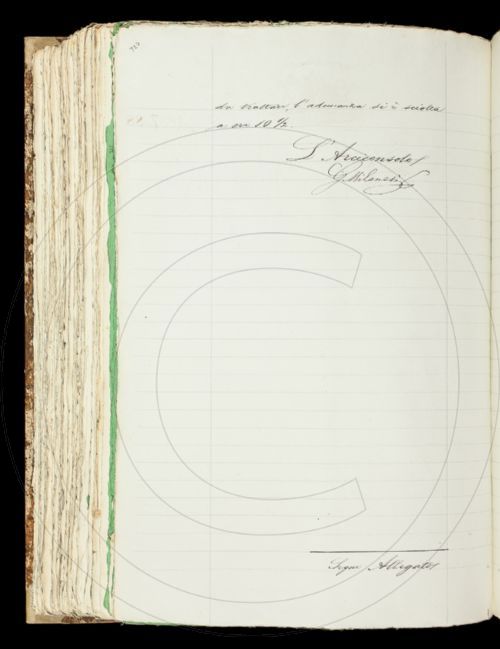 da trattare, l'adunanza si è sciolta
a ore 10 ½.
L'Arciconsolo
G Milanesi
Segue Allegato